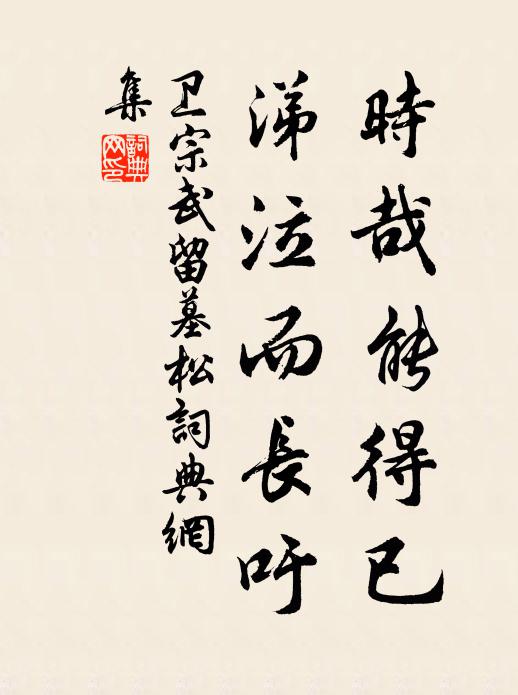 時哉能得已
涕泣而長吁
卫宗武留墓松詞典網
集
詞典
网印